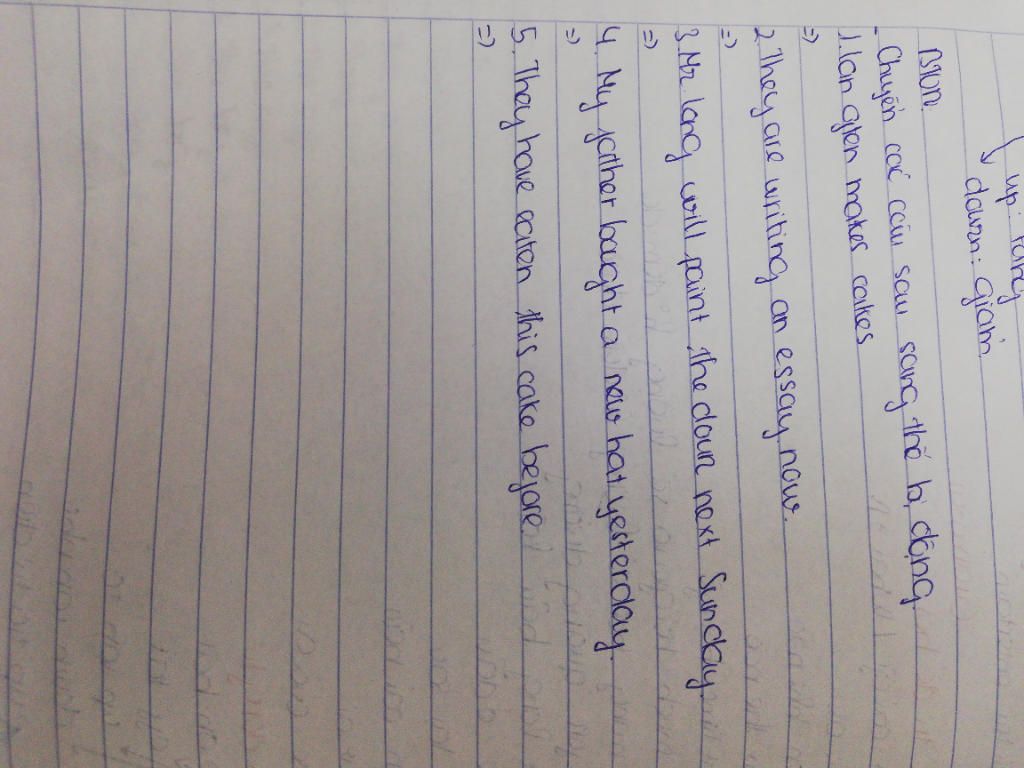 up: tăng
down: giảm
BTVN:
- Chuyển các câu sau sang thể bị động
1. Lan often makes cakes
=>
2. They are writing an essay now.
=>
3. Mr. long will paint the door next Sunday
=>
4. My father bought a new hat yesterday.
=>
5. They have eaten this cake before
=>